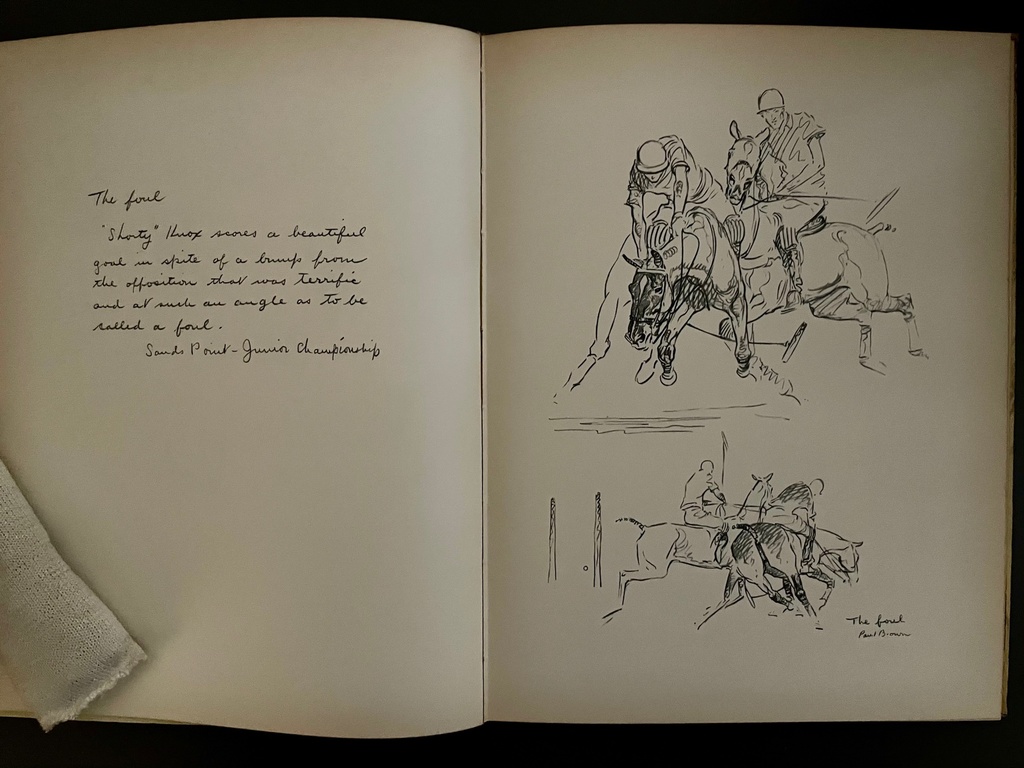 The foul
"Shorty" Knox scores a beautiful
goal in spite of a bump from
the opposition that was terrific
and at such an angle as to be
called a foul.
Sands Point - Junior Championship
The foul
Paul Brown